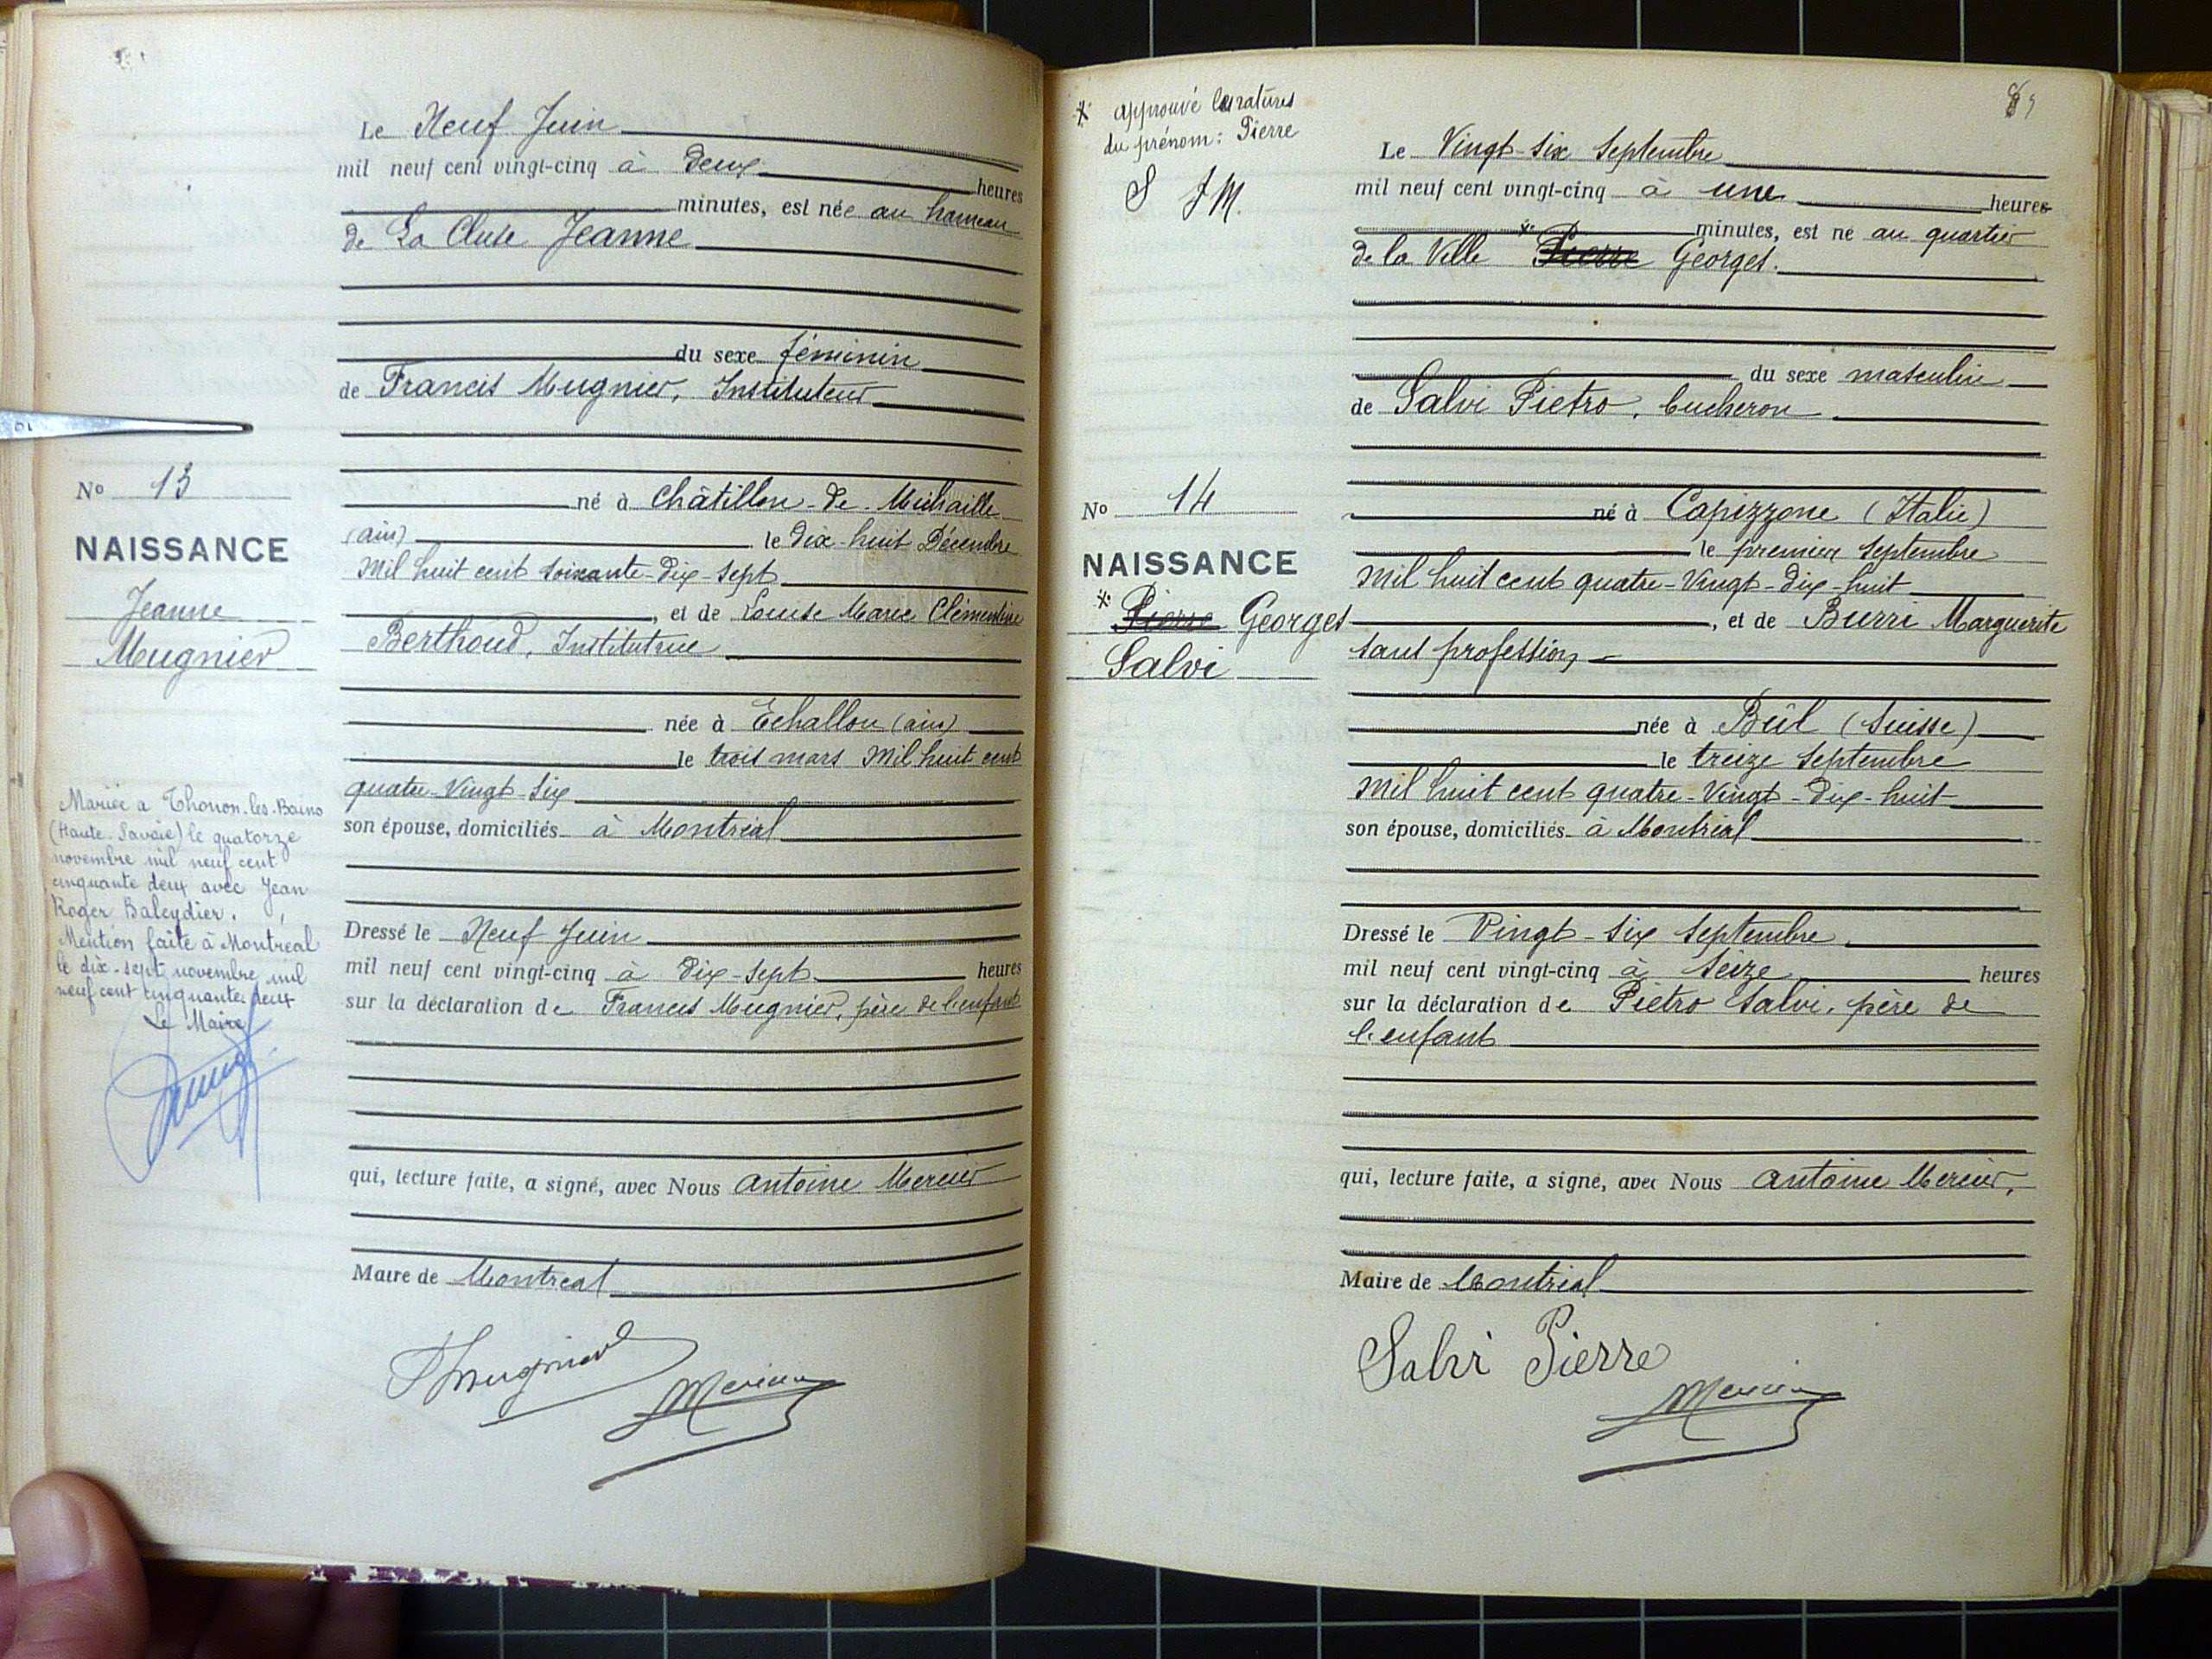 Le Neuf Juin
mil neuf cent vingt-cinq à deux heures
minutes, est née au hameau
de La Cluse Jeanne
du sexe féminin
de Francis Mugnier, Instituteur
né à Châtillon-de-Michaille
(ain) le dix-huit Décembre
mil huit cent soixante-dix-sept
, et de Louise Marie Clémentine
Berthoud, Institutrice
née à Echallon (ain)
le trois mars mil huit cent
quatre-vingt-six
son épouse, domiciliés à Montréal
Dressé le Neuf Juin
mil neuf cent vingt-cinq à dix-sept heures
sur la déclaration de Francis Mugnier, père de l'enfant
qui, lecture faite, a signé, avec Nous Antoine Mercier
Maire de Montréal
Mugnier
Mercier
No 13
NAISSANCE
Jeanne
Mugnier
Mariée à Thonon-les-Bains
(Haute-Savoie) le quatorze
novembre mil neuf cent
cinquante deux avec Jean
Roger Baleydier.
Mention faite à Montréal
le dix-sept novembre mil
neuf cent cinquante deux
Le Maire
89
* approuvé les ratures
du prénom: Pierre
S J M.
Le Vingt-six Septembre
mil neuf cent vingt-cinq à une heures
minutes, est né au quartier
de la Ville * Pierre Georges.
du sexe masculin
de Salvi Pietro, bucheron
né à Capizzone (Italie)
le premier Septembre
mil huit cent quatre-Vingt-dix-huit
, et de Burri Marguerite
sans profession
née à Bül (Suisse)
le treize Septembre
mil huit cent quatre-Vingt-dix-huit
son épouse, domiciliés à Montréal
Dressé le Vingt-six Septembre
mil neuf cent vingt-cinq à seize heures
sur la déclaration de Pietro Salvi, père de
l'enfant
qui, lecture faite, a signé, avec Nous Antoine Mercier,
Maire de Montréal
Salvi Pierre
Mercier
No 14
NAISSANCE
* Pierre Georges
Salvi